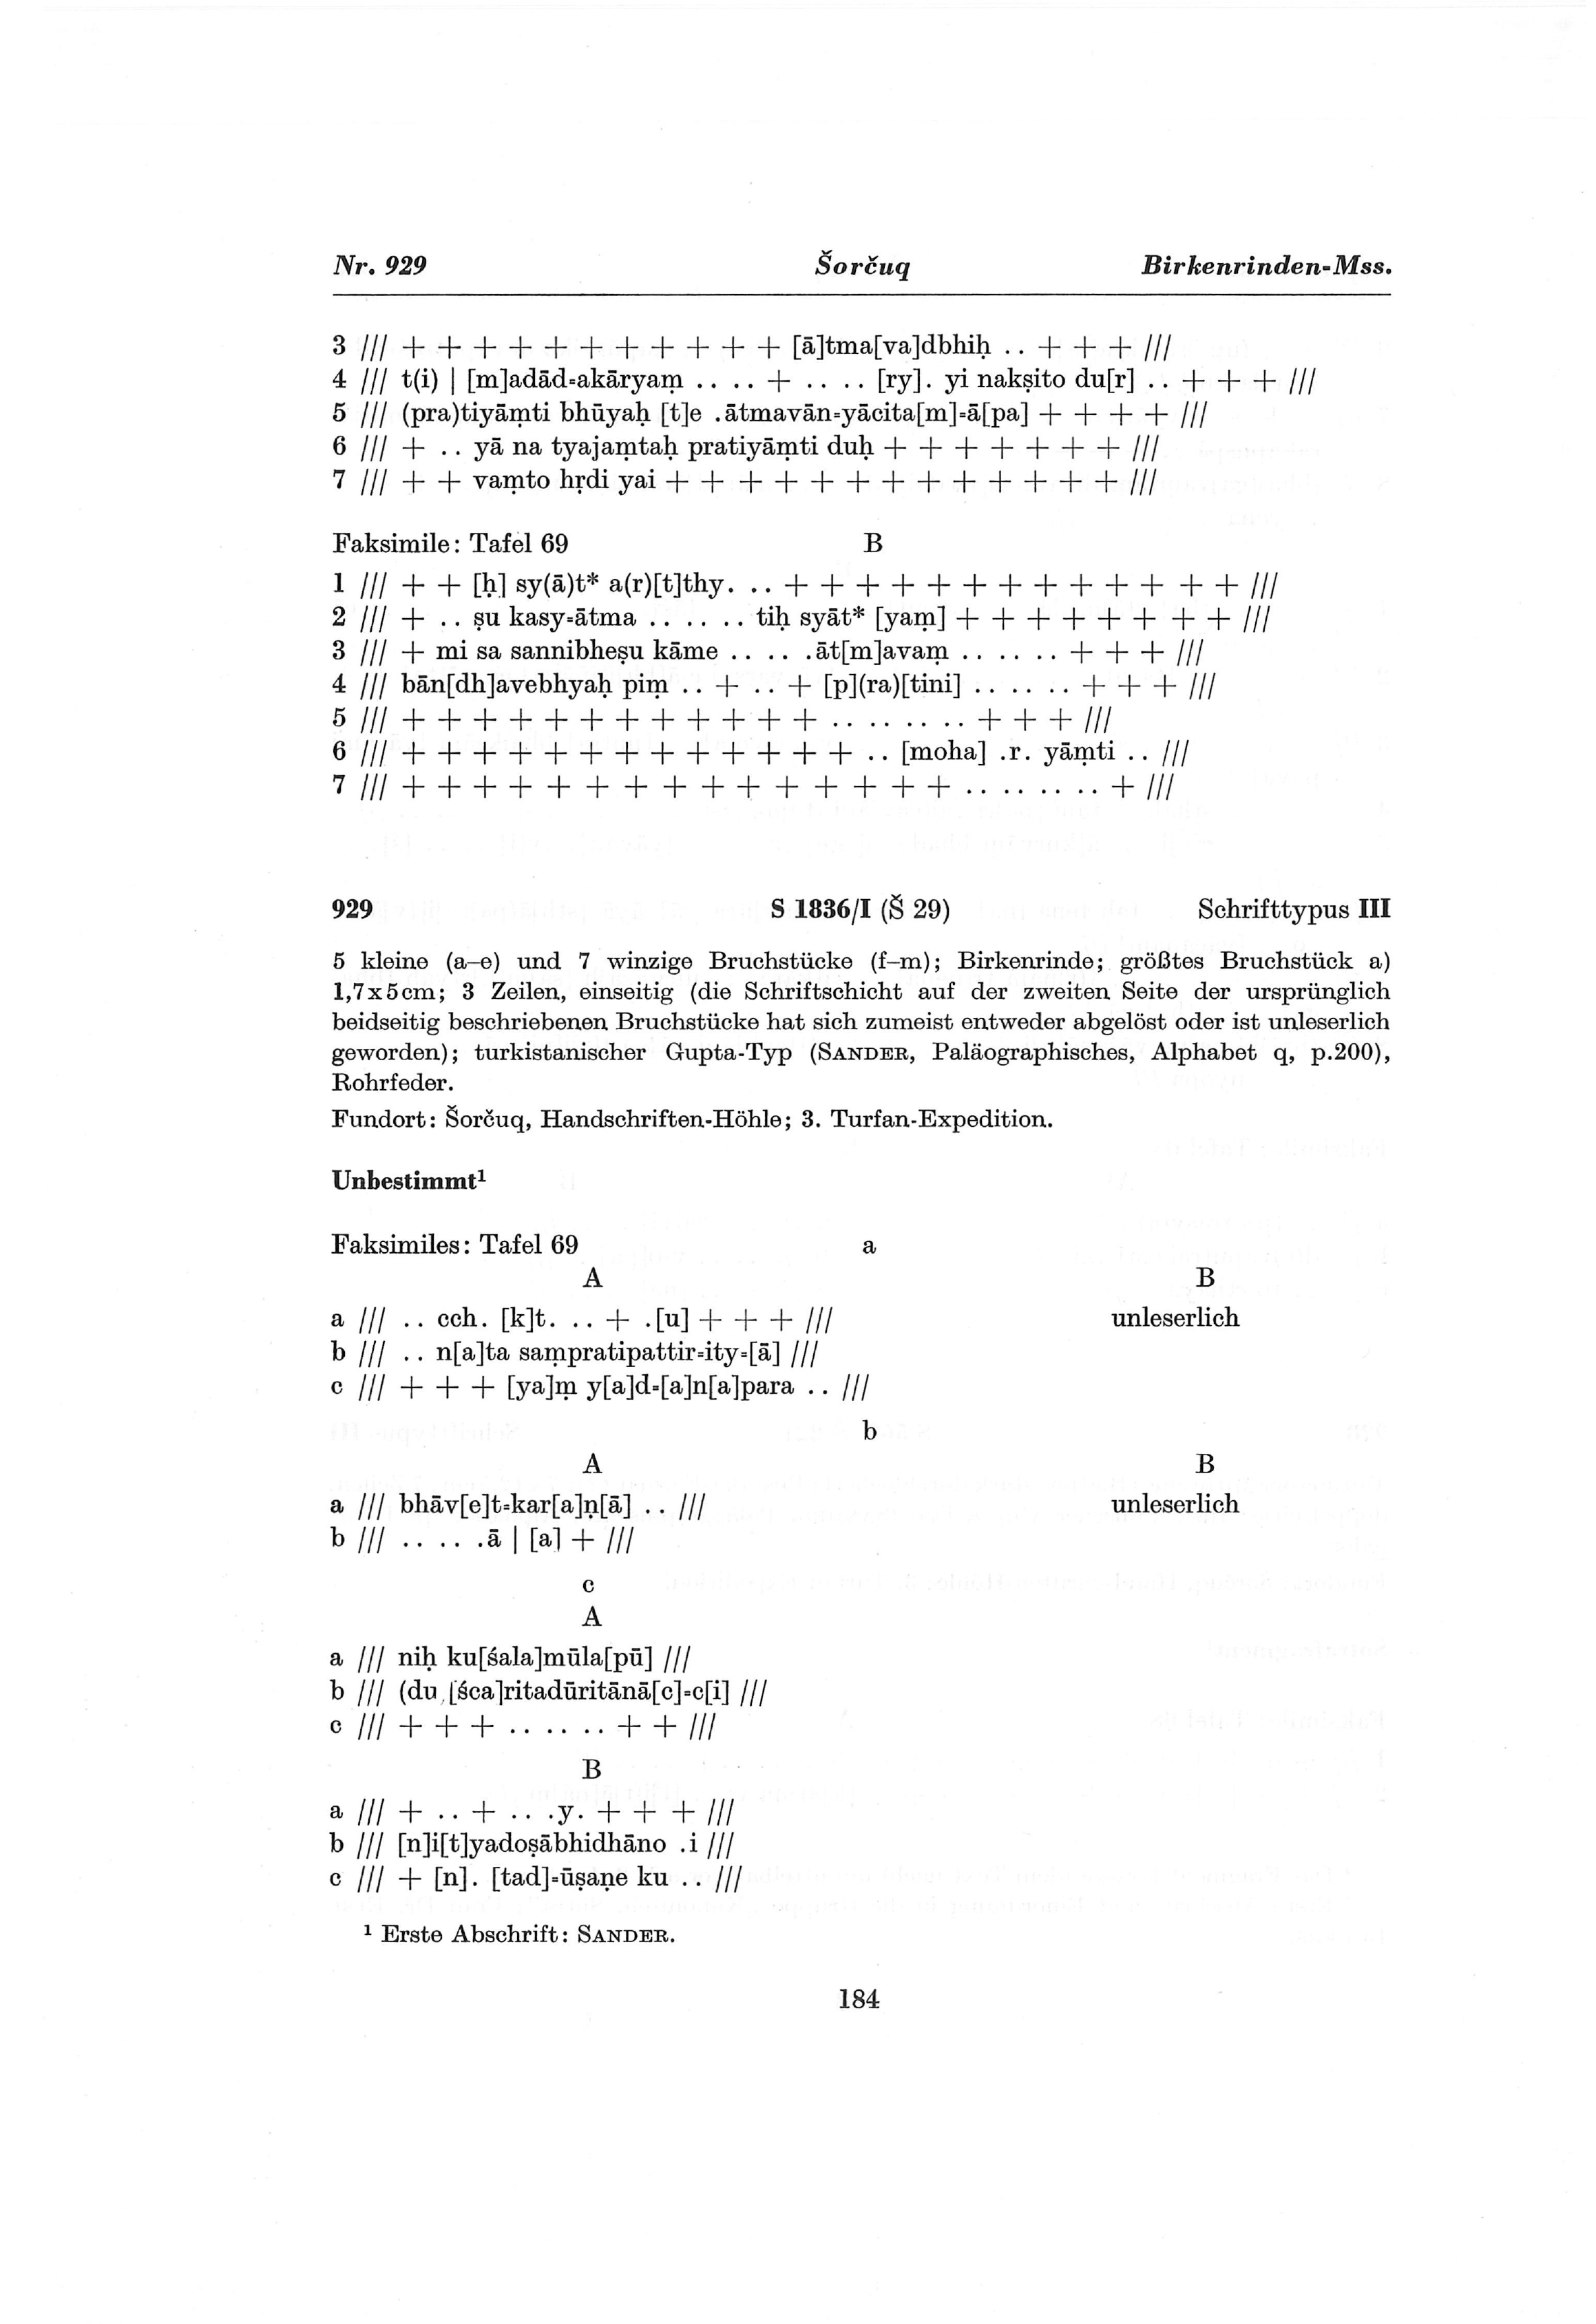 Nr. 929 Šorčuq Birkenrinden-Mss.
3 /// + + + + + + + + + + + [ā]tma[va]dbhiḥ .. + + + ///
4 /// t(i) | [m]adād=akāryaṃ .. .. + .. .. [ry]. yi nakṣito du[r] .. + + + ///
5 /// (pra)tiyāṃti bhūyaḥ [t]e .ātmavān=yācita[m]=ā[pa] + + + + ///
6 /// + .. yā na tyajaṃtaḥ pratiyāṃti duḥ + + + + + + + ///
7 /// + + vaṃto hṛdi yai + + + + + + + + + + + + + ///
Faksimile: Tafel 69 B
1 /// + + [ḥ] sy(ā)t* a(r)[t]thy. .. + + + + + + + + + + + + + ///
2 /// + .. ṣu kasy=ātma .. .. .. tiḥ syāt* [yaṃ] + + + + + + + + ///
3 /// + mi sa sannibheṣu kāme .. .. .āt[m]avaṃ .. .. .. + + + ///
4 /// bān[dh]avebhyaḥ piṃ .. + .. + [p](ra)[tini] .. .. .. + + + ///
5 /// + + + + + + + + + + + + .. .. .. .. + + + ///
6 /// + + + + + + + + + + + + + .. [moha] .r. yāṃti .. ///
7 /// + + + + + + + + + + + + + + + .. .. .. .. + ///
929 S 1836/I (Š 29) Schrifttypus III
5 kleine (a–e) und 7 winzige Bruchstücke (f–m); Birkenrinde; größtes Bruchstück a)
1,7x5cm; 3 Zeilen, einseitig (die Schriftschicht auf der zweiten Seite der ursprünglich
beidseitig beschriebenen Bruchstücke hat sich zumeist entweder abgelöst oder ist unleserlich
geworden); turkistanischer Gupta-Typ (SANDER, Paläographisches, Alphabet q, p.200),
Rohrfeder.
Fundort: Šorčuq, Handschriften-Höhle; 3. Turfan-Expedition.
Unbestimmt¹
Faksimiles: Tafel 69 a
A B
a /// .. cch. [k]t. .. + .[u] + + + /// unleserlich
b /// .. n[a]ta saṃpratipattir=ity=[ā] ///
c /// + + + [ya]ṃ y[a]d=[a]n[a]para .. ///
b
A B
a /// bhāv[e]t=kar[a]ṇ[ā] .. /// unleserlich
b /// .. .. .ā | [a] + ///
c
A
a /// niḥ ku[śala]mūla[pū] ///
b /// (du [śca]ritadūritānā[c]=c[i] ///
c /// + + + .. .. .. + + ///
B
a /// + .. + .. .y. + + + ///
b /// [n]i[t]yadoṣābhidhāno .i ///
c /// + [n]. [tad]=ūṣaṇe ku .. ///
¹ Erste Abschrift: SANDER.
184